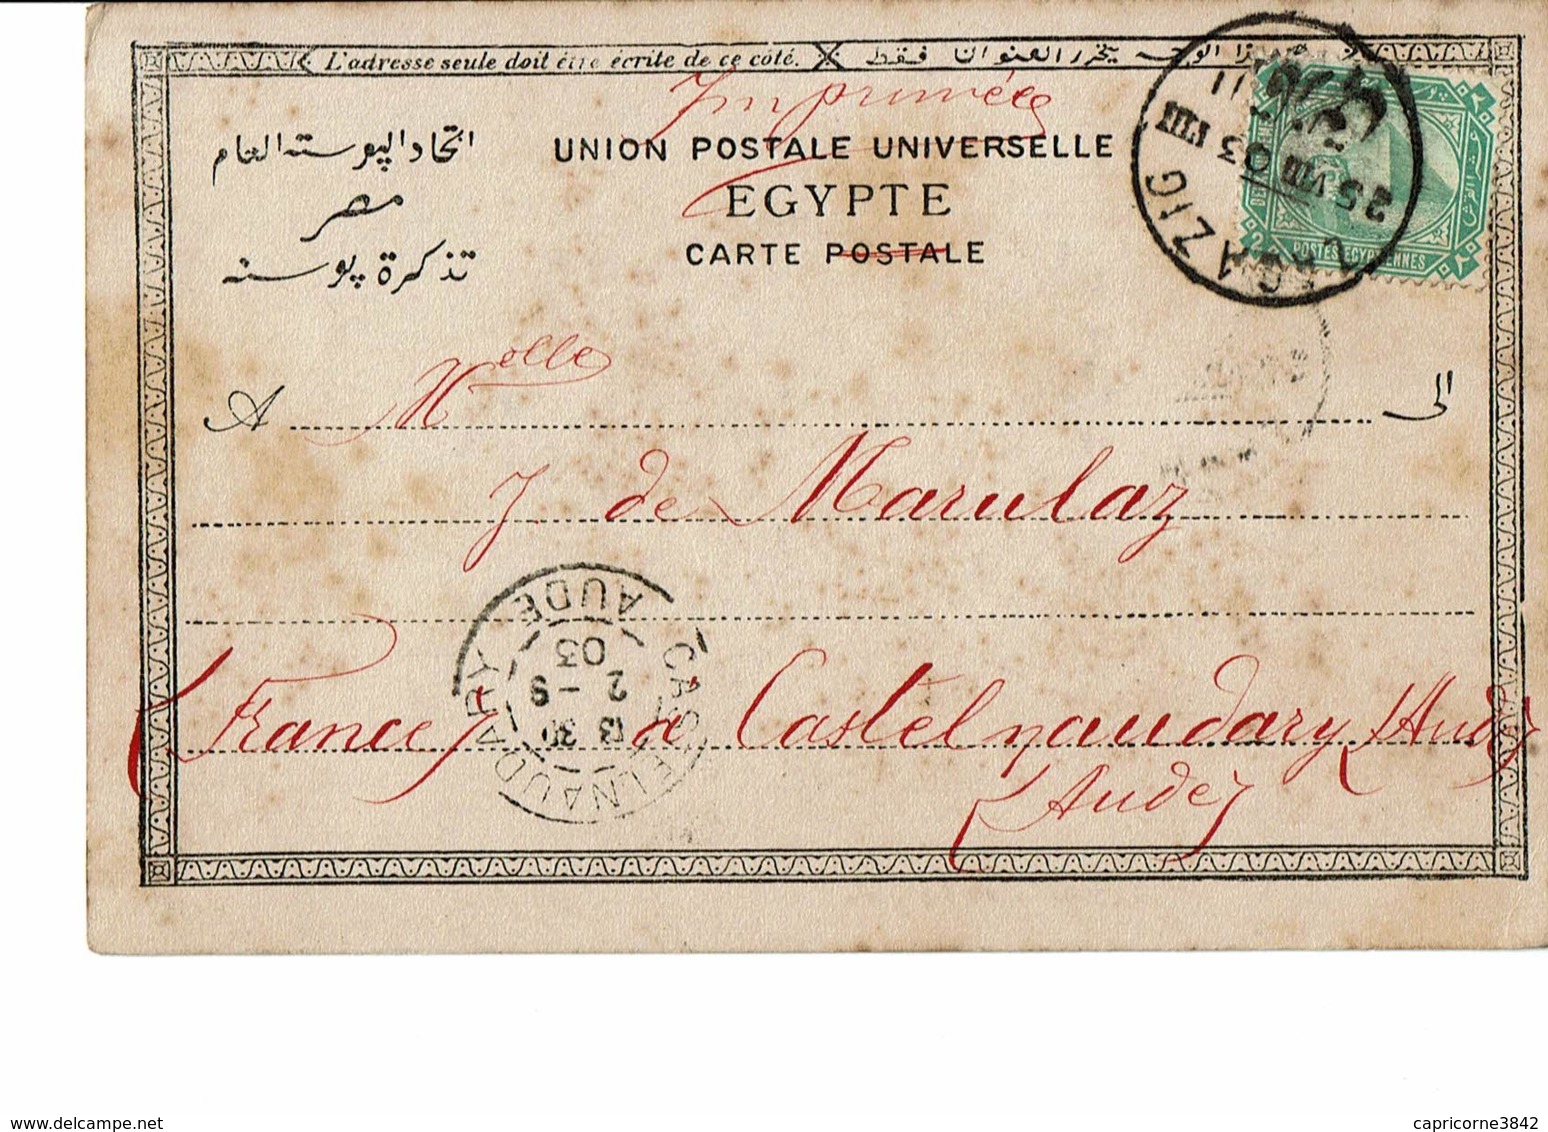 L'adresse seule doit être écrite de ce côté.
فقط العنوان يحرر
Imprimée
اتحاد البوسته العام
UNION POSTALE UNIVERSELLE
مصر
EGYPTE
تذكرة بوسته
CARTE POSTALE
ZAGAZIG
25 VIII 03
POSTES EGYPTIENNES
A Melle
الى
J de Marulaz
CASTELNAUDARY
AUDE
2 -9
03
(France) à Castelnaudary (Aude)
(Aude)
delcampe.net
capricorne3842